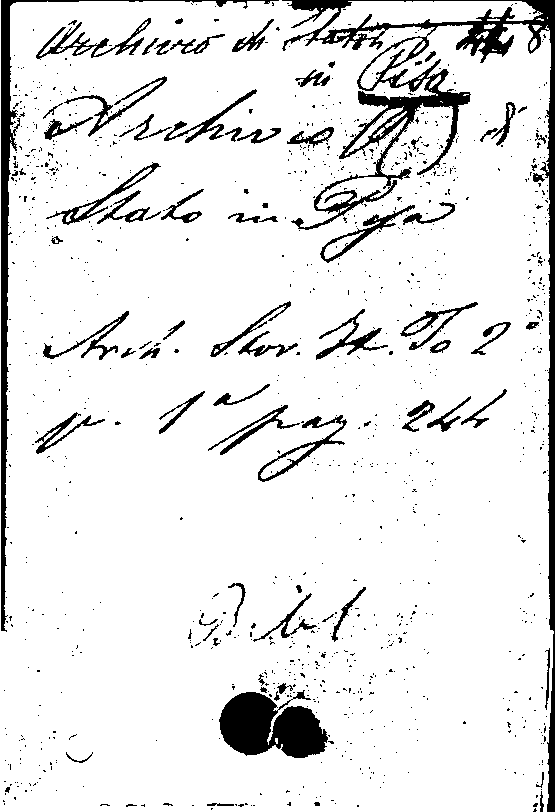 Archivio di Stato
in Pisa
Archivio (R) di
Stato in Pisa
Arch. Stor. It. To 2°
p. 1ª pag. 244
Bibl